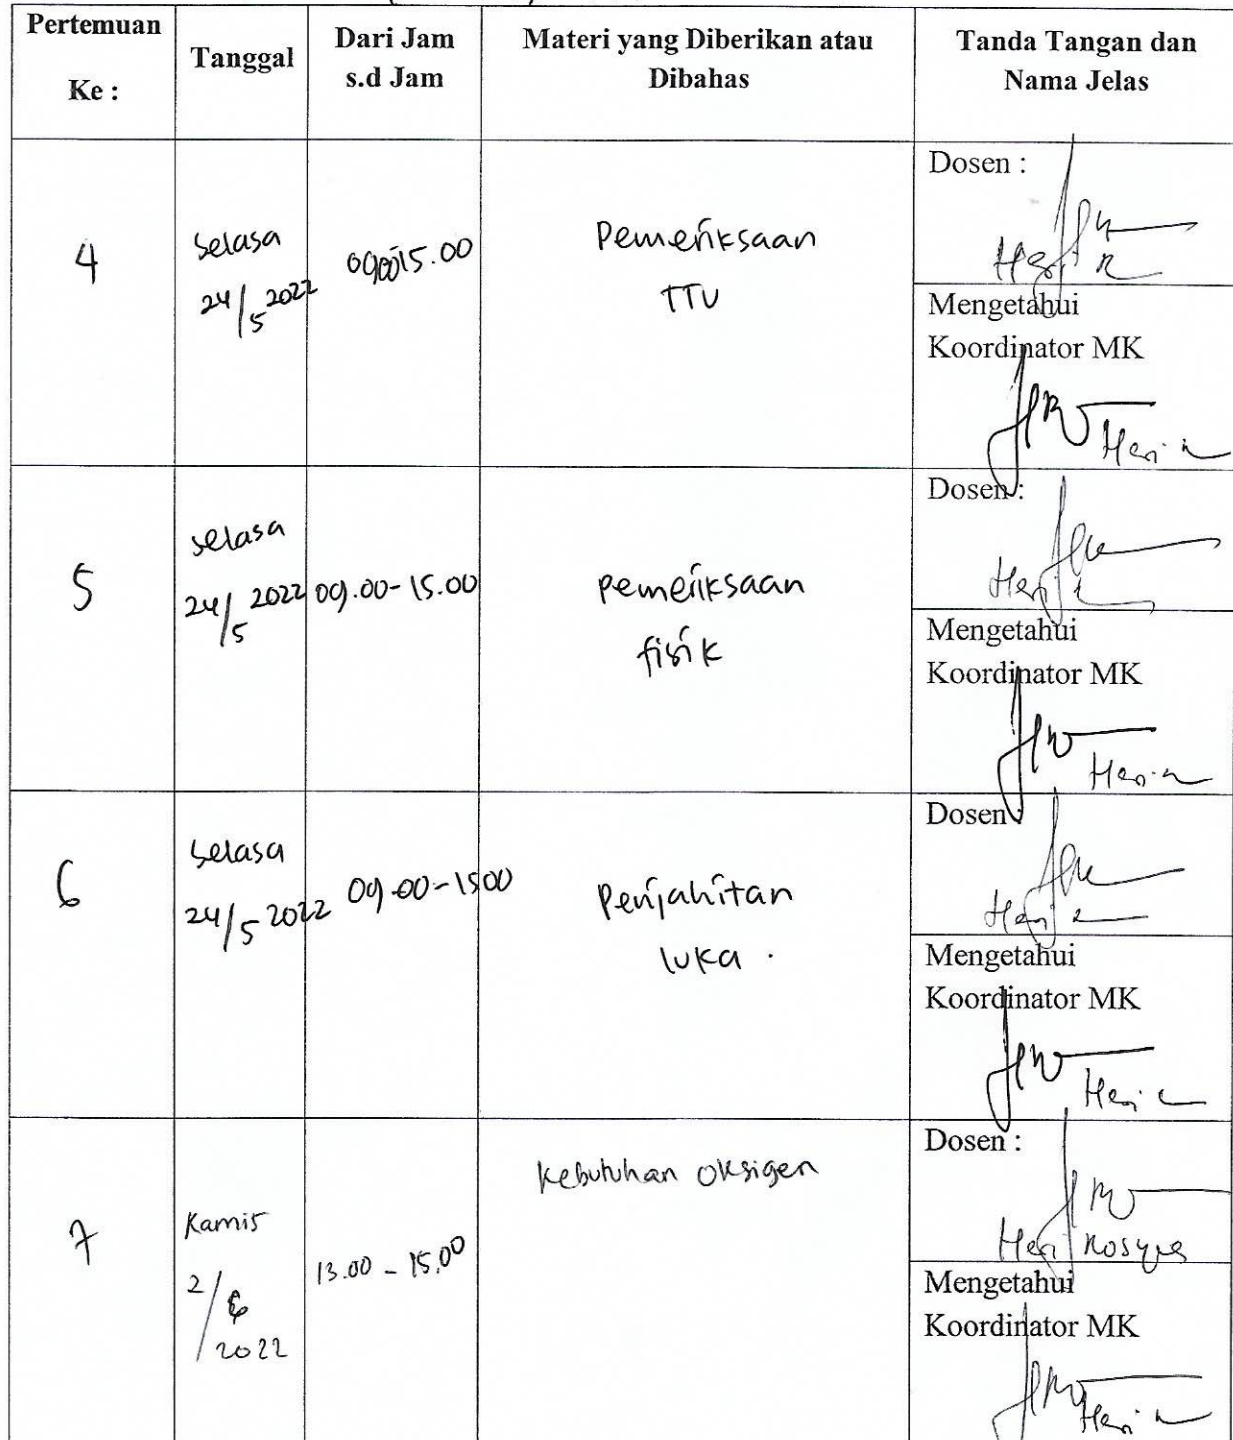 Pertemuan
Ke :
Tanggal
Dari Jam
s.d Jam
Materi yang Diberikan atau
Dibahas
Tanda Tangan dan
Nama Jelas
4
Selasa
24/5 2022
15.00
Pemeriksaan
TTU
Dosen :
Heri R
Mengetahui
Koordinator MK
Heri
5
selasa
24/5 2022
09.00-15.00
Pemeriksaan
fisik
Dosen :
Heri
Mengetahui
Koordinator MK
Heri
6
Selasa
24/5 2022
09.00-1500
Penjahitan
luka .
Dosen :
Heri
Mengetahui
Koordinator MK
Heri
7
Kamis
2/6
2022
13.00 - 15.00
Kebutuhan Oksigen
Dosen :
Heri
Mengetahui
Koordinator MK
Heri